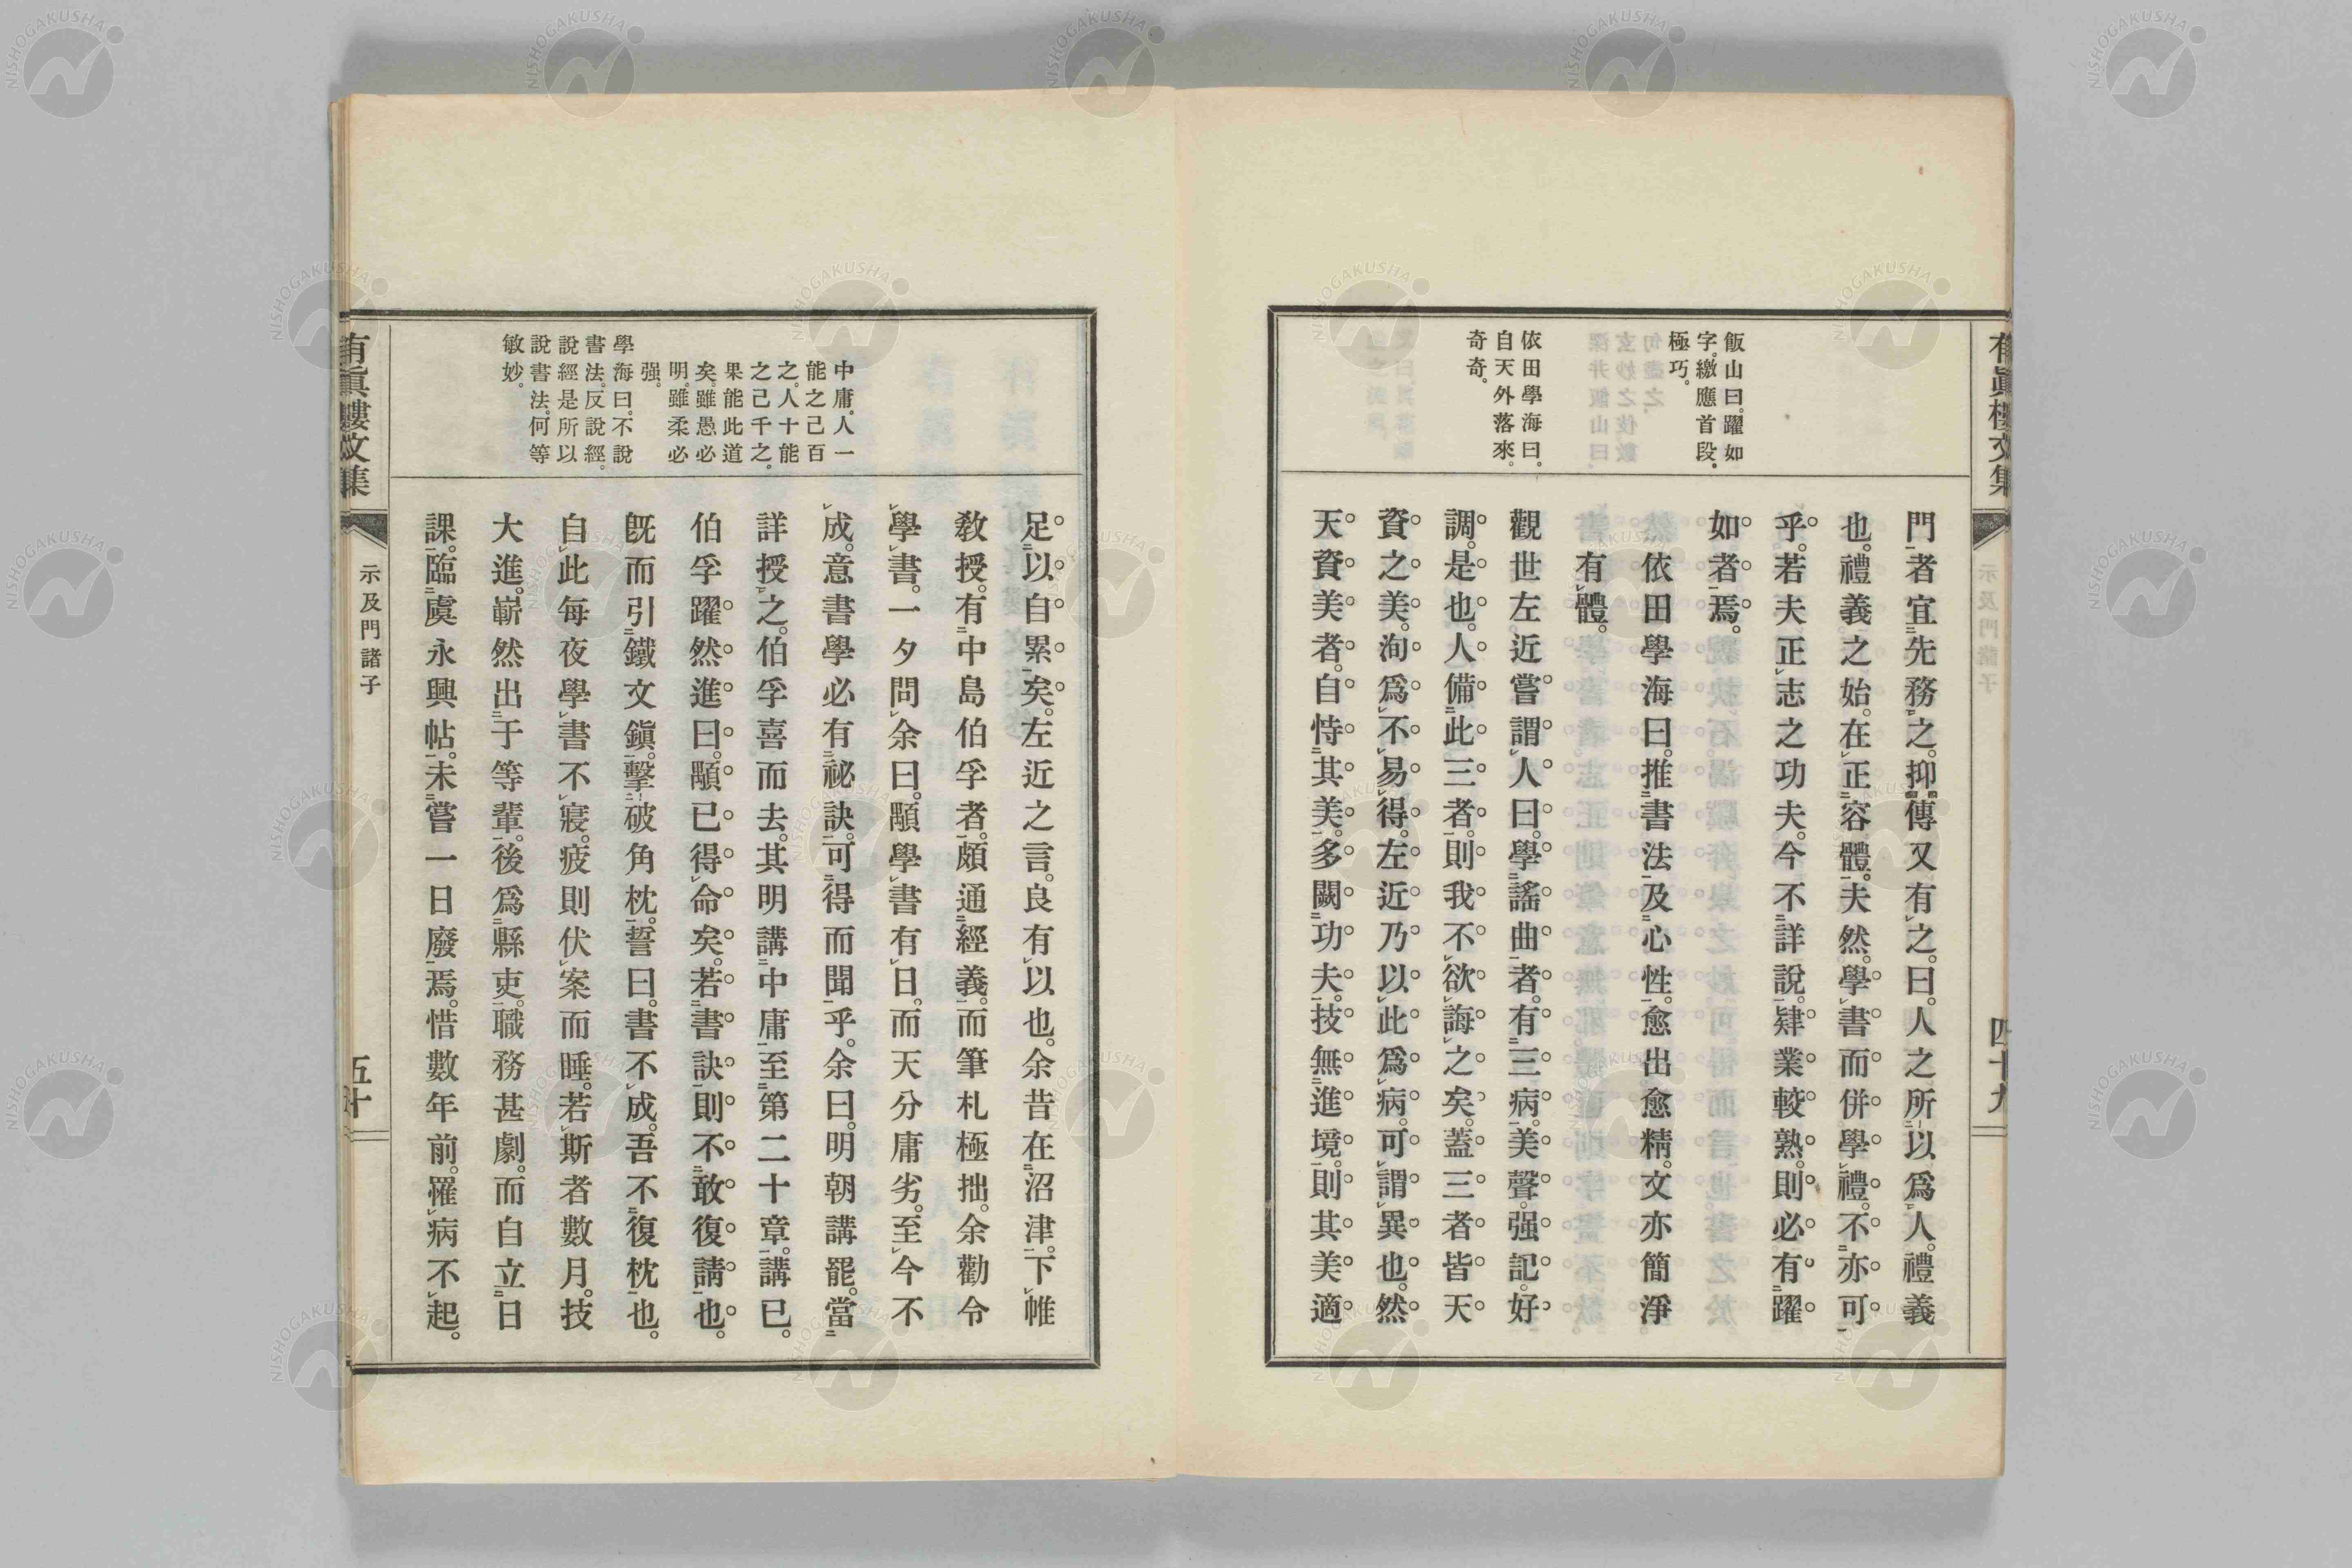 有眞樓文集
示及門諸子
四十九
飯山曰。躍如
字。繳應首段。
極巧。
依田學海曰。
自天外落來。
奇奇。
門者宜先務之。抑傳又有之。曰。人之所以爲人。禮義
也。禮義之始。在正容體。夫然。學書而併學禮。不亦可
乎。若夫正志之功夫。今不詳說。肄業較熟。則必有躍
如者焉。
依田學海曰。推書法及心性。愈出愈精。文亦簡淨
有體。
觀世左近嘗謂人曰。學謠曲者。有三病。美聲。强記。好
調。是也。人備此三者。則我不欲誨之矣。蓋三者皆天
資之美。洵爲不易得。左近乃以此爲病。可謂異也。然
天資美者。自恃其美。多闕功夫。技無進境。則其美適
中庸。人一
能之己百
之。人十能
之己千之。
果能此道
矣。雖愚必
明。雖柔必
强。
學海曰。不說
書法。反說經。
說經是所以
說書法。何等
敏妙。
足以自累矣。左近之言。良有以也。余昔在沼津。下帷
敎授。有中島伯孚者。頗通經義。而筆札極拙。余勸令
學書。一夕問余曰。顒學書有日。而天分庸劣。至今不
成。意書學必有祕訣。可得而聞乎。余曰。明朝講罷。當
詳授之。伯孚喜而去。其明講中庸。至第二十章。講已。
伯孚躍然進曰。顒已得命矣。若書訣。則不敢復請也。
旣而引鐵文鎭。擊破角枕。誓曰。書不成。吾不復枕也。
自此每夜學書不寢。疲則伏案而睡。若斯者數月。技
大進。嶄然出于等輩。後爲縣吏。職務甚劇。而自立日
課。臨虞永興帖。未嘗一日廢焉。惜數年前。罹病不起。
有眞樓文集
示及門諸子
五十